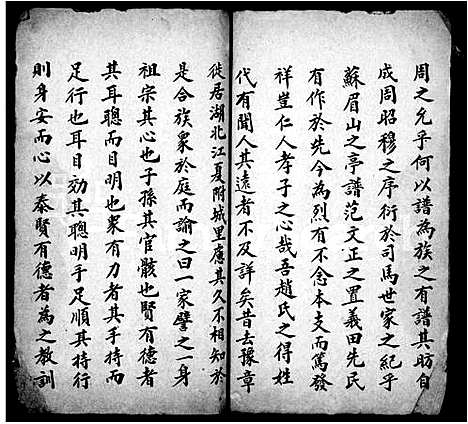 周之允乎何以譜為族之有譜其昉自
成周昭穆之序衍於司馬世家之紀乎
蘇眉山之亭譜范文正之置義田先民
有作於先今為烈有不念本支而篤發
祥豈仁人孝子之心哉吾趙氏之得姓
代有聞人其遠者不及詳矣昔去豫章
徙居湖北江夏附城里慮其久不相知於
是合族衆於庭而諭之曰一家譬之一身
祖宗其心也子孫其官骸也賢有德者
其耳聰而目明也衆有力者其手持而
足行也耳目効其聰明手足順其持行
則身安而心以泰賢有德者為之教訓